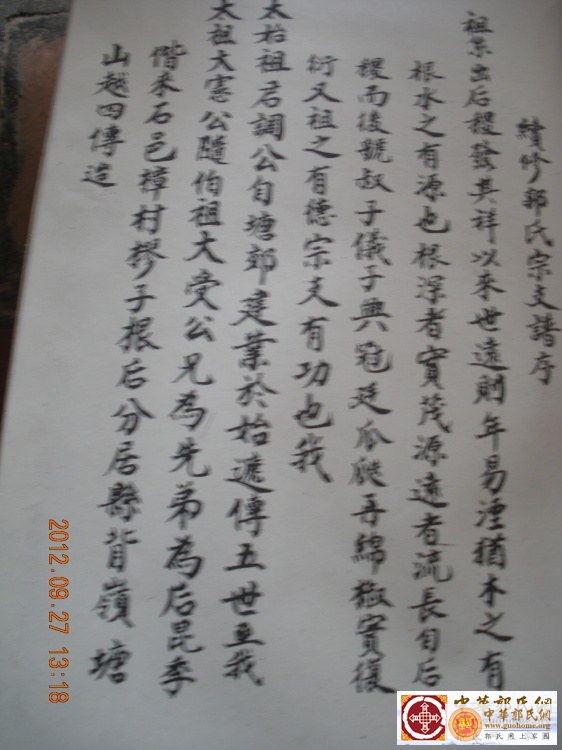 續修郭氏宗支譜序
祖系出后稷發其祥以來世遠則年易湮猶木之有
根水之有源也根深者實茂源遠者流長自后
稷而後號叔子儀子興冠廷瓜瓞再綿椒實復
衍又祖之有德宗支有功也我
太始祖君調公自塘郊建業於始遞傳五世至我
太祖大憲公隨伯祖大受公兄為先弟為后昆季
偕來石邑樟村樛子根后分居縣背嶺塘
山越四傳迄
2012.09.27 13:18
中華郭氏網
中華郭氏網
guoshome.com
郭氏網上家園